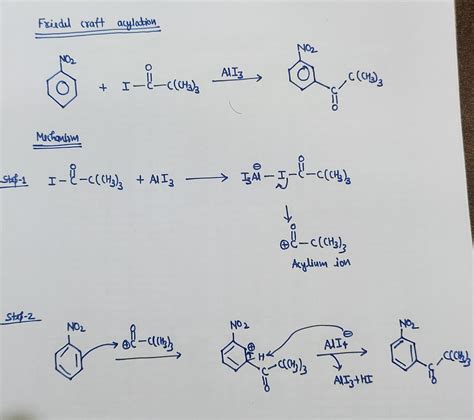 Friedel craft acylation
NO2
+ I-C-C(CH3)3
O
AlI3
NO2
C(CH3)3
C
O
Mechanism
Step-1
O
I-C-C(CH3)3 + AlI3
⊖ O
I3Al-I-C-C(CH3)3
O
⊕C-C(CH3)3
Acylium ion
Step-2
NO2
O
⊕C-C(CH3)3
NO2
⊕
H
C-C(CH3)3
O
⊖
AlI4
AlI3+HI
NO2
C(CH3)3
C
O